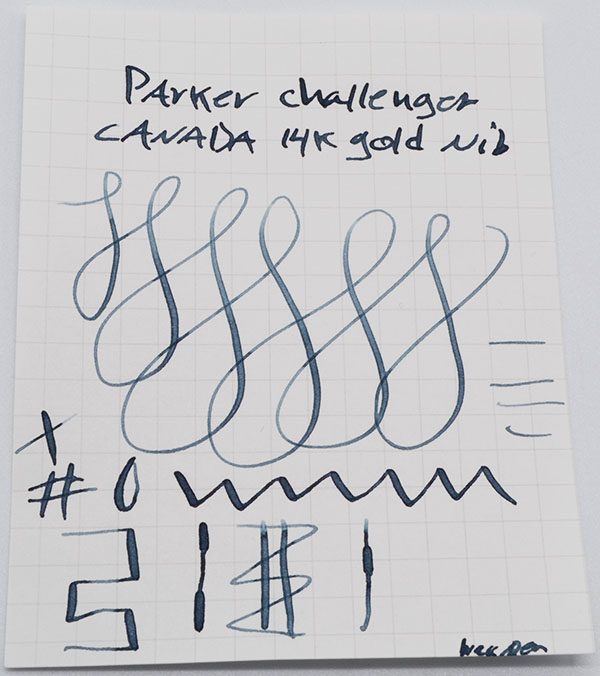 PArKer challenger
CANADA 14K gold Nib
X
# 0
$